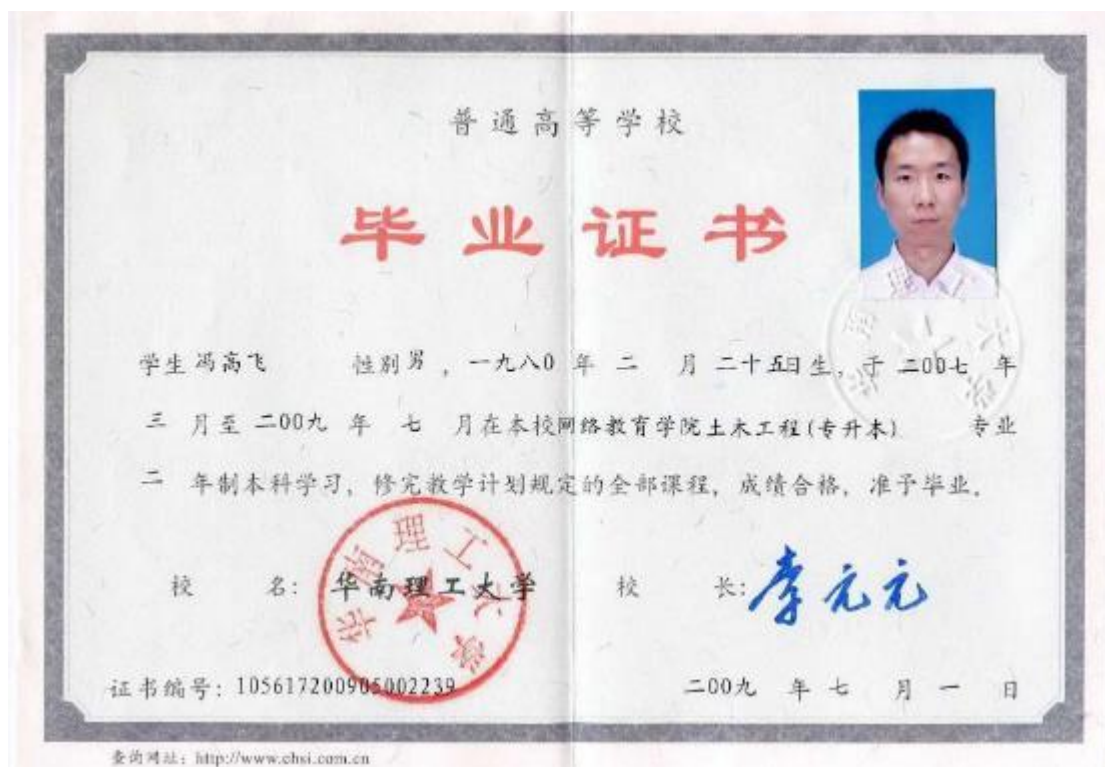 普通高等学校
毕业证书
学生 冯高飞 性别 男 ，一九八0 年 二 月 二十五日生，于 二00七 年
三 月至 二00九 年 七 月在本校网络教育学院土木工程(专升本) 专业
二 年制本科学习，修完教学计划规定的全部课程，成绩合格，准予毕业。
校 名：华南理工大学 校 长：李元元
华南理工大学
证书编号：105617200905002239 二00九 年 七 月 一 日
查询网址：http://www.chsi.com.cn